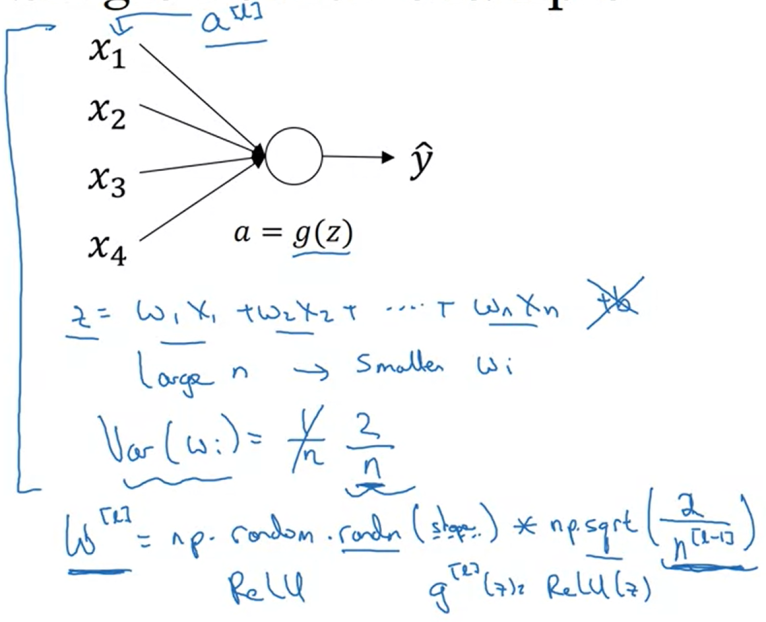 a^[l]
x₁
x₂
x₃
x₄
ŷ
a = g(z)
z = w₁x₁ + w₂x₂ + ..... + wₙxₙ +b
Large n → Smaller wᵢ
Var(wᵢ) = 1/n 2/n
W^[l] = np.random.randn(shape) * np.sqrt(2/n^[l-1])
ReLU g^[l](z) = ReLU(z)